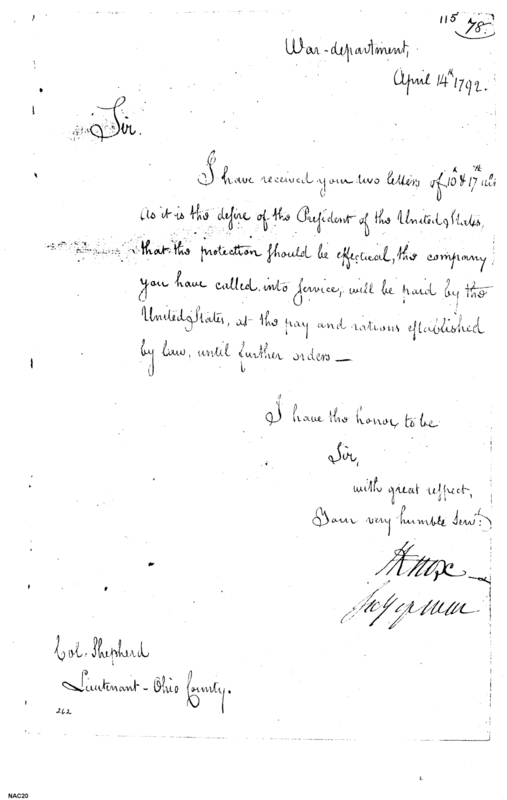 115
78.
War-department,
April 14th 1792.
Sir.
I have received your two letters of 10th & 17th ulto
As it is the desire of the President of the United States,
that the protection should be effectual, the company
you have called into service, will be paid by the
United States, at the pay and rations established
by law, until further orders —
I have the honor, to be
Sir,
with great respect,
Your very humble Servt:
HKnox
Secy of War
Col. Shepherd
Lieutenant - Ohio County.
262
NAC20